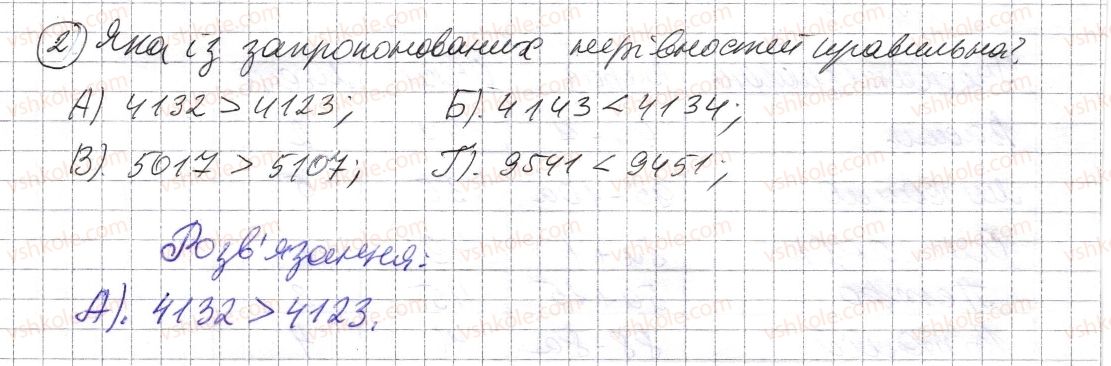 2) Яка із запропонованих нерівностей правильна?
А) 4132 > 4123; Б). 4143 < 4134;
В). 5017 > 5107; Г). 9541 < 9451;
Розв'язання:
А). 4132 > 4123.